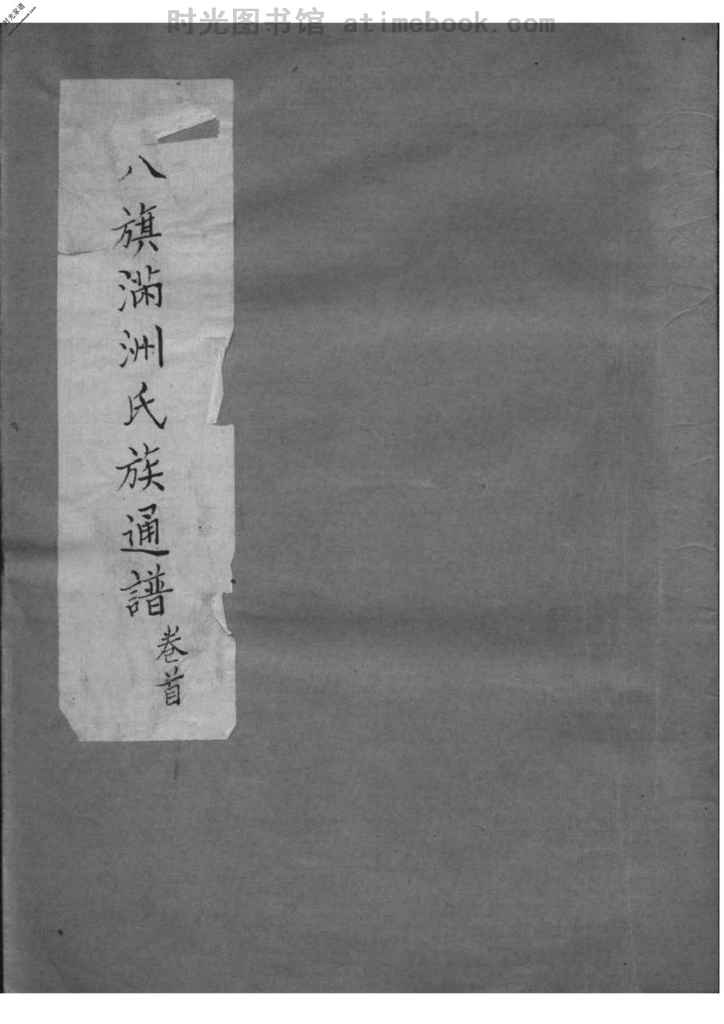 时光图书馆 atimebook.com
八旗滿洲氏族通譜
卷首